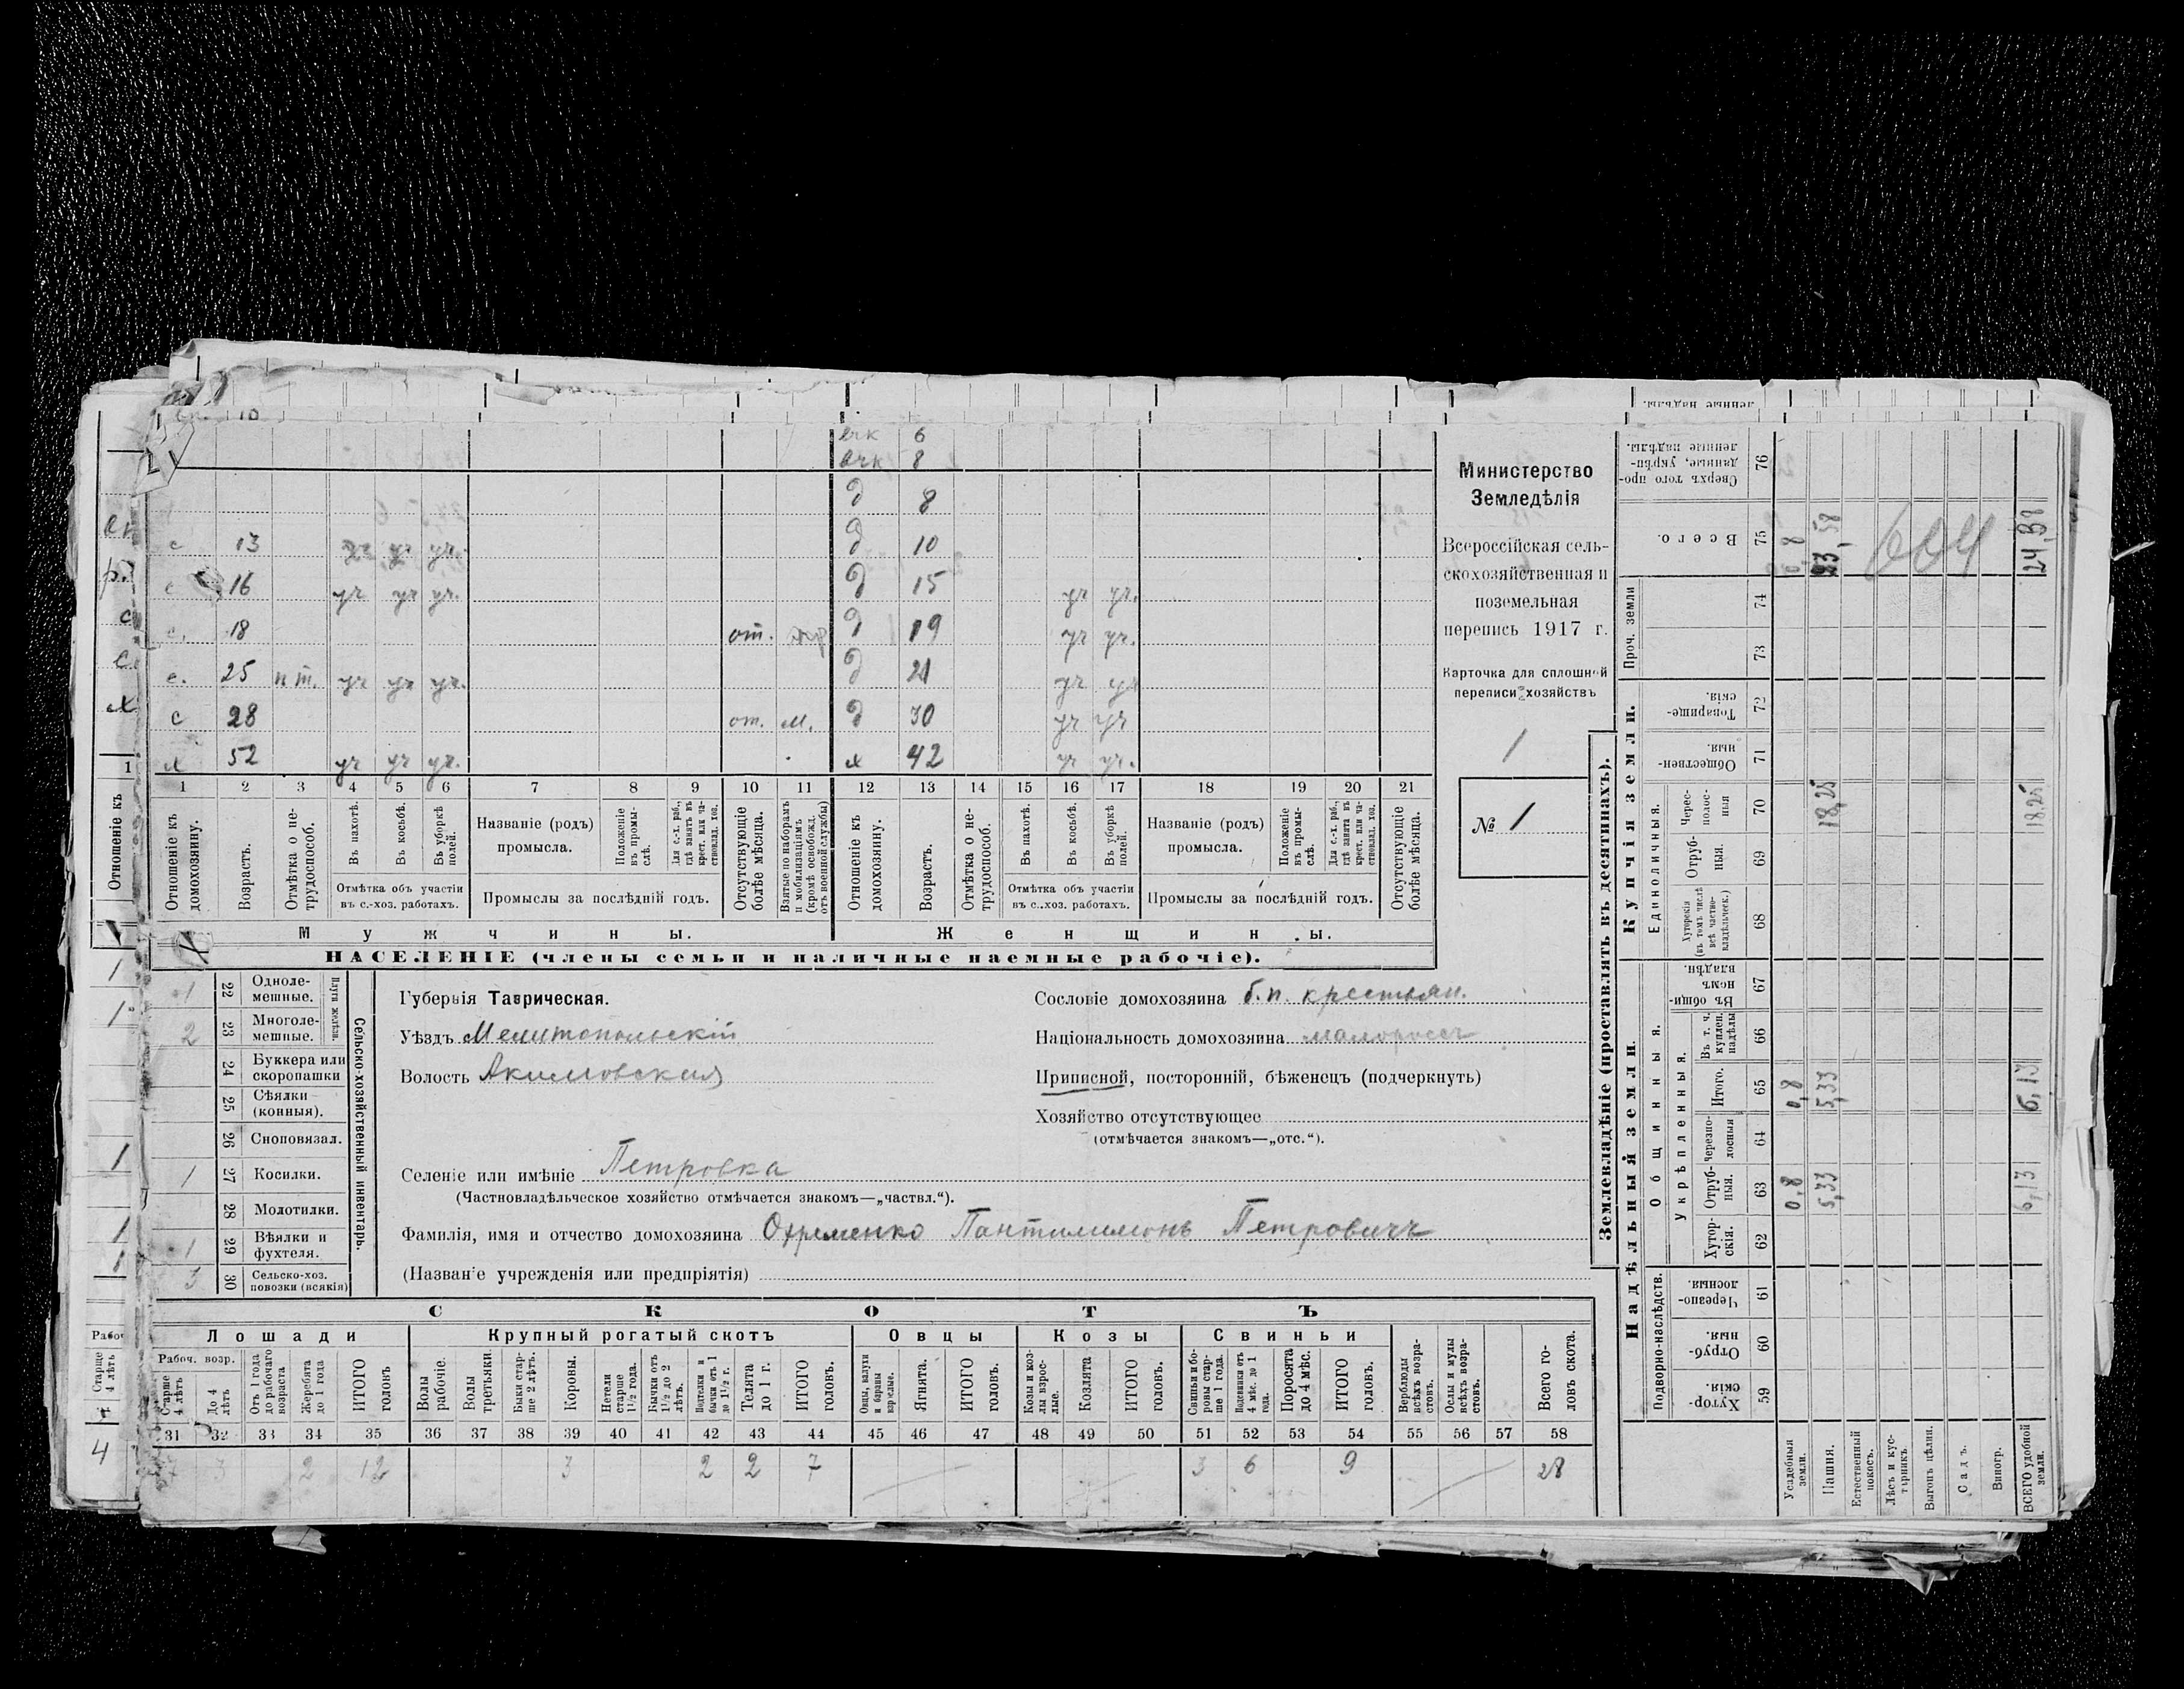 вчк 6
вчк 8
д 8
с 13 уч уч уч. д 10
с 16 уч уч уч. д 15 уч уч.
с. 18 от. д 19 уч уч.
с. 25 п т. уч уч уч. д 21 уч уч
с 28 от. м. д 30 уч уч
х 52 уч уч уч. х 42 уч уч.
1 2 3 4 5 6 7 8 9 10 11 12 13 14 15 16 17 18 19 20 21
Отношеніе къ домохозяину.
Возрастъ.
Отмѣтка о не-трудоспособ.
Въ пахотѣ.
Въ косьбѣ.
Въ уборкѣ полей.
Отмѣтка объ участіи
въ с.-хоз. работахъ.
Названіе (родъ)
промысла.
Положеніе въ промы-слѣ.
Для с.-х. раб., гдѣ занятъ въ крест. или ча-стновлад. хоз.
Промыслы за послѣдній годъ.
Отсутствующіе болѣе мѣсяца.
Взятые по наборамъ и мобилизаціямъ (кромѣ освобожд. отъ военной службы)
Отношеніе къ домохозяину.
Возрастъ.
Отмѣтка о не-трудоспособ.
Въ пахотѣ.
Въ косьбѣ.
Въ уборкѣ полей.
Отмѣтка объ участіи
въ с.-хоз. работахъ.
Названіе (родъ)
промысла.
Положеніе въ промы-слѣ.
Для с.-х. раб., гдѣ занята въ крест. или ча-стновлад. хоз.
Промыслы за послѣдній годъ.
Отсутствующіе болѣе мѣсяца.
Мужчины. Женщины.
НАСЕЛЕНІЕ (члены семьи и наличные наемные рабочіе).
Министерство
Земледѣлія
Всероссійская сель-
скохозяйственная и
поземельная
перепись 1917 г.
Карточка для сплошной
переписи хозяйствъ
1
№ 1
Сельско-хозяйственный инвентарь.
Плуги желѣзн.
1 22 Одноле-мешные.
2 23 Многоле-мешные.
24 Буккера или скоропашки
25 Сѣялки (конныя).
26 Сноповязал.
1 27 Косилки.
28 Молотилки.
1 29 Вѣялки и фухтеля.
3 30 Сельско-хоз. повозки (всякія)
Губернія Таврическая.
Уѣздъ Мелитопольскій
Волость Акимовская
Селеніе или имѣніе Петровка
(Частновладѣльческое хозяйство отмѣчается знакомъ—„частвл.“).
Фамилія, имя и отчество домохозяина Охременко Пантилимонъ Петровичъ
(Названіе учрежденія или предпріятія)
Сословіе домохозяина б.п. крестьян.
Національность домохозяина малороссъ
Приписной, посторонній, бѣженецъ (подчеркнуть)
Хозяйство отсутствующее
(отмѣчается знакомъ—„отс.“).
СКОТЪ
Лошади Крупный рогатый скотъ Овцы Козы Свиньи
Рабоч. возр.
Старше 4 лѣтъ
До 4 лѣтъ
Отъ 1 года до рабочаго возраста
Жеребята до 1 года
ИТОГО головъ
Волы рабочіе.
Волы третьяки.
Быки стар-ше 2 лѣтъ.
Коровы.
Нетели старше 1½ года.
Бычки отъ 1½ до 2 лѣтъ.
Подтелки и бычки отъ 1 до 1½ г.
Телята до 1 г.
ИТОГО головъ.
Овцы, валухи и бараны взрослые.
Ягнята.
ИТОГО головъ.
Козы и коз-лы взрос-лые.
Козлята
ИТОГО головъ.
Свиньи и бо-ровы стар-ше 1 года.
Подсвинки отъ 4 мѣс. до 1 года.
Поросята до 4 мѣс.
ИТОГО головъ.
Верблюды всѣхъ возра-стовъ.
Ослы и мулы всѣхъ возра-стовъ.
Всего го-ловъ скота.
31 32 33 34 35 36 37 38 39 40 41 42 43 44 45 46 47 48 49 50 51 52 53 54 55 56 57 58
7 3 2 12 3 2 2 7 3 6 9 28
Землевладѣніе (проставлять въ десятинахъ).
Надѣльныя земли.
Купчія земли.
Проч. земли
Подворно-наслѣдств.
Общинныя.
Укрѣпленныя.
Единоличныя.
Хутор-скія. 59
Отруб-ныя. 60
Черезпо-лосныя 61
Хутор-скія. 62
Отруб-ныя. 63 0,8 5,33 6,13
Черезпо-лосныя 64
Итого. 65 0,8 5,33 6,13
Въ т. ч. куплен. надѣлы 66
Въ общи-номъ владѣн. 67
Хуторскія (въ томъ числѣ всѣ частно-владѣльческ.) 68
Отруб-ныя. 69
Черес-полос-ныя 70 18,25 18,25
Обществен-ныя. 71
Товарище-скія. 72
73
74
Всего. 75 0,8 23,58 24,38
Сверхъ того про-данные, укрѣп-ленные надѣлы. 76
Усадебныя земли.
Пашня.
Естественный покосъ.
Лѣсъ и кус-тарникъ
Выгонъ цѣлин.
Садъ.
Виногр.
ВСЕГО удобной земли.
Отношеніе къ
Рабоч
Старше 4 лѣтъ
4